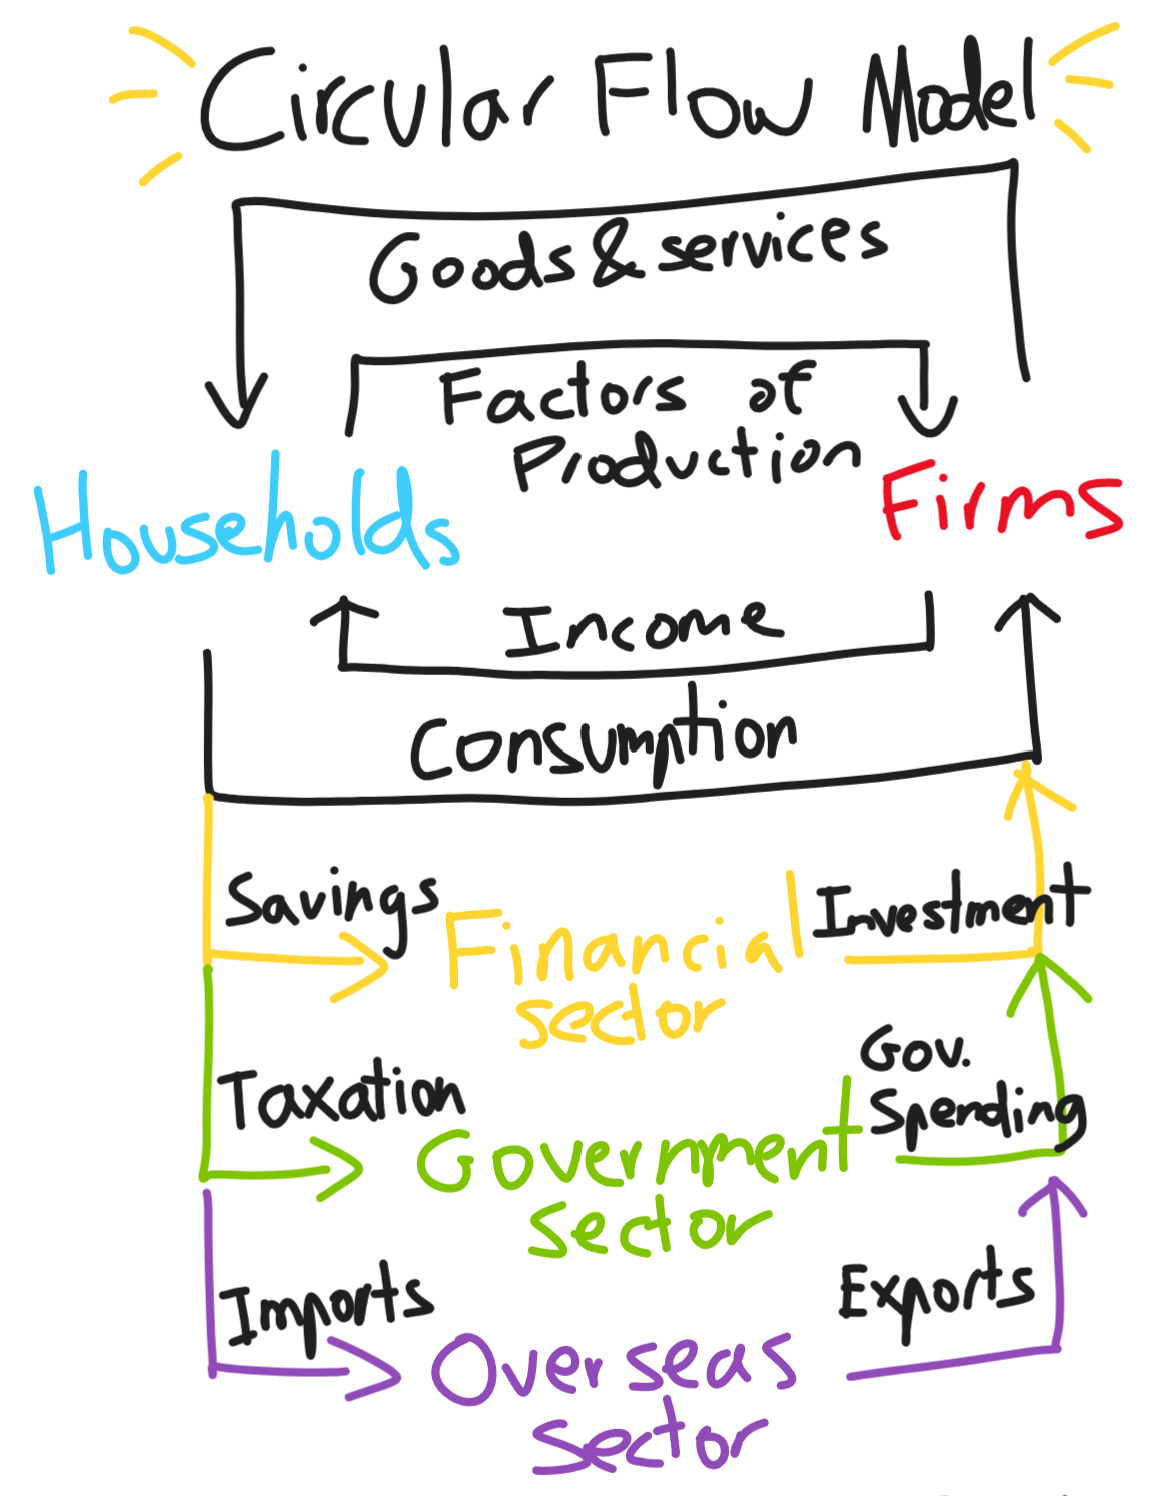 Circular Flow Model
Goods & services
Factors of
Production
Households
Firms
Income
Consumption
Savings
Financial
sector
Investment
Taxation
Government
sector
Gov.
Spending
Imports
Overseas
sector
Exports